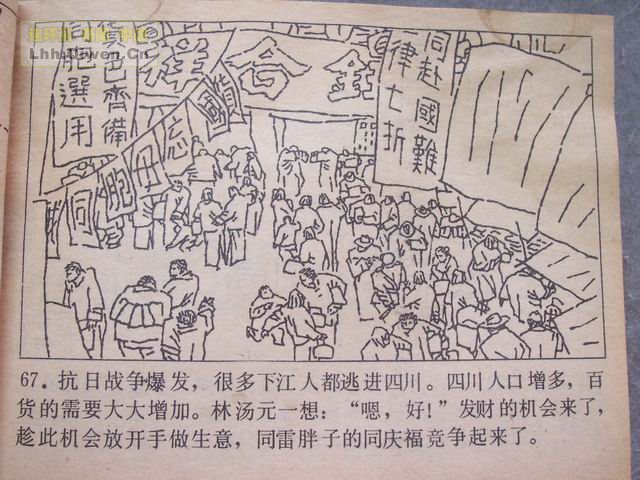 貨色齊備
同胞選用
祥合鑫
同赴國難
一律七折
同胞毋忘國
67．抗日战争爆发，很多下江人都逃进四川。四川人口增多，百
货的需要大大增加。林汤元一想：“嗯，好！”发财的机会来了，
趁此机会放开手做生意，同雷胖子的同庆福竞争起来了。